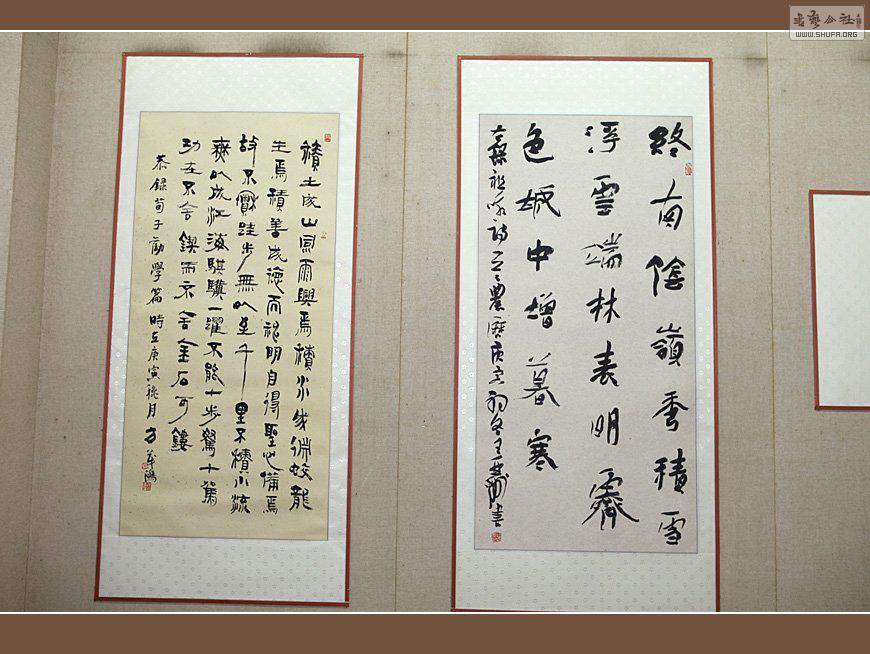 書藝公社
WWW.SHUFA.ORG
終南陰嶺秀積雪
浮雲端林表明霽
色城中增暮寒
祖詠詩一 農曆庚寅初冬王 書
積土成山風雨興焉積水成淵蛟龍
生焉積善成德而神明自得聖心備焉
故不積跬步無以至千里不積小流
無以成江海騏驥一躍不能十步駑十駕
功在不舍鍥而不舍金石可鏤
恭錄荀子勸學篇 時在庚寅 月 方 鴻